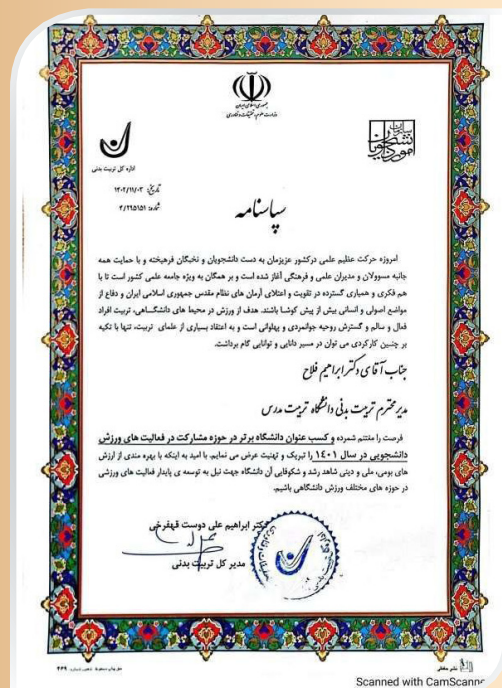 جمهوری اسلامی ایران
وزارت علوم، تحقیقات و فناوری
سازمان امور دانشجویان
اداره کل تربیت بدنی
تاریخ: ۱۴۰۲/۱۱/۰۳
شماره: ۴/۲۹۵۱۵۱
سپاسنامه
امروزه حرکت عظیم علمی درکشور عزیزمان به دست دانشجویان و نخبگان فرهیخته و با حمایت همه
جانبه مسوولان و مدیران علمی و فرهنگی آغاز شده است و بر همگان به ویژه جامعه علمی کشور است تا با
هم فکری و همیاری گسترده در تقویت و اعتلای آرمان های نظام مقدس جمهوری اسلامی ایران و دفاع از
مواضع اصولی و انسانی بیش از پیش کوشا باشند. هدف از ورزش در محیط های دانشگاهی، تربیت افراد
فعال و سالم و گسترش روحیه جوانمردی و پهلوانی است و به اعتقاد بسیاری از علمای تربیت، تنها با تکیه
بر چنین کارکردی می توان در مسیر دانایی و توانایی گام برداشت.
جناب آقای دکتر ابراهیم فلاح
مدیر محترم تربیت بدنی دانشگاه تربیت مدرس
فرصت را مغتنم شمرده و کسب عنوان دانشگاه برتر در حوزه مشارکت در فعالیت های ورزش
دانشجویی در سال ۱۴۰۱ را تبریک و تهنیت عرض می نمایم. با امید به اینکه با بهره مندی از ارزش
های بومی، ملی و دینی شاهد رشد و شکوفایی آن دانشگاه جهت نیل به توسعه ی پایدار فعالیت های ورزشی
در حوزه های مختلف ورزش دانشگاهی باشیم.
دکتر ابراهیم علی دوست قهفرخی
مدیر کل تربیت بدنی
Scanned with CamScanne